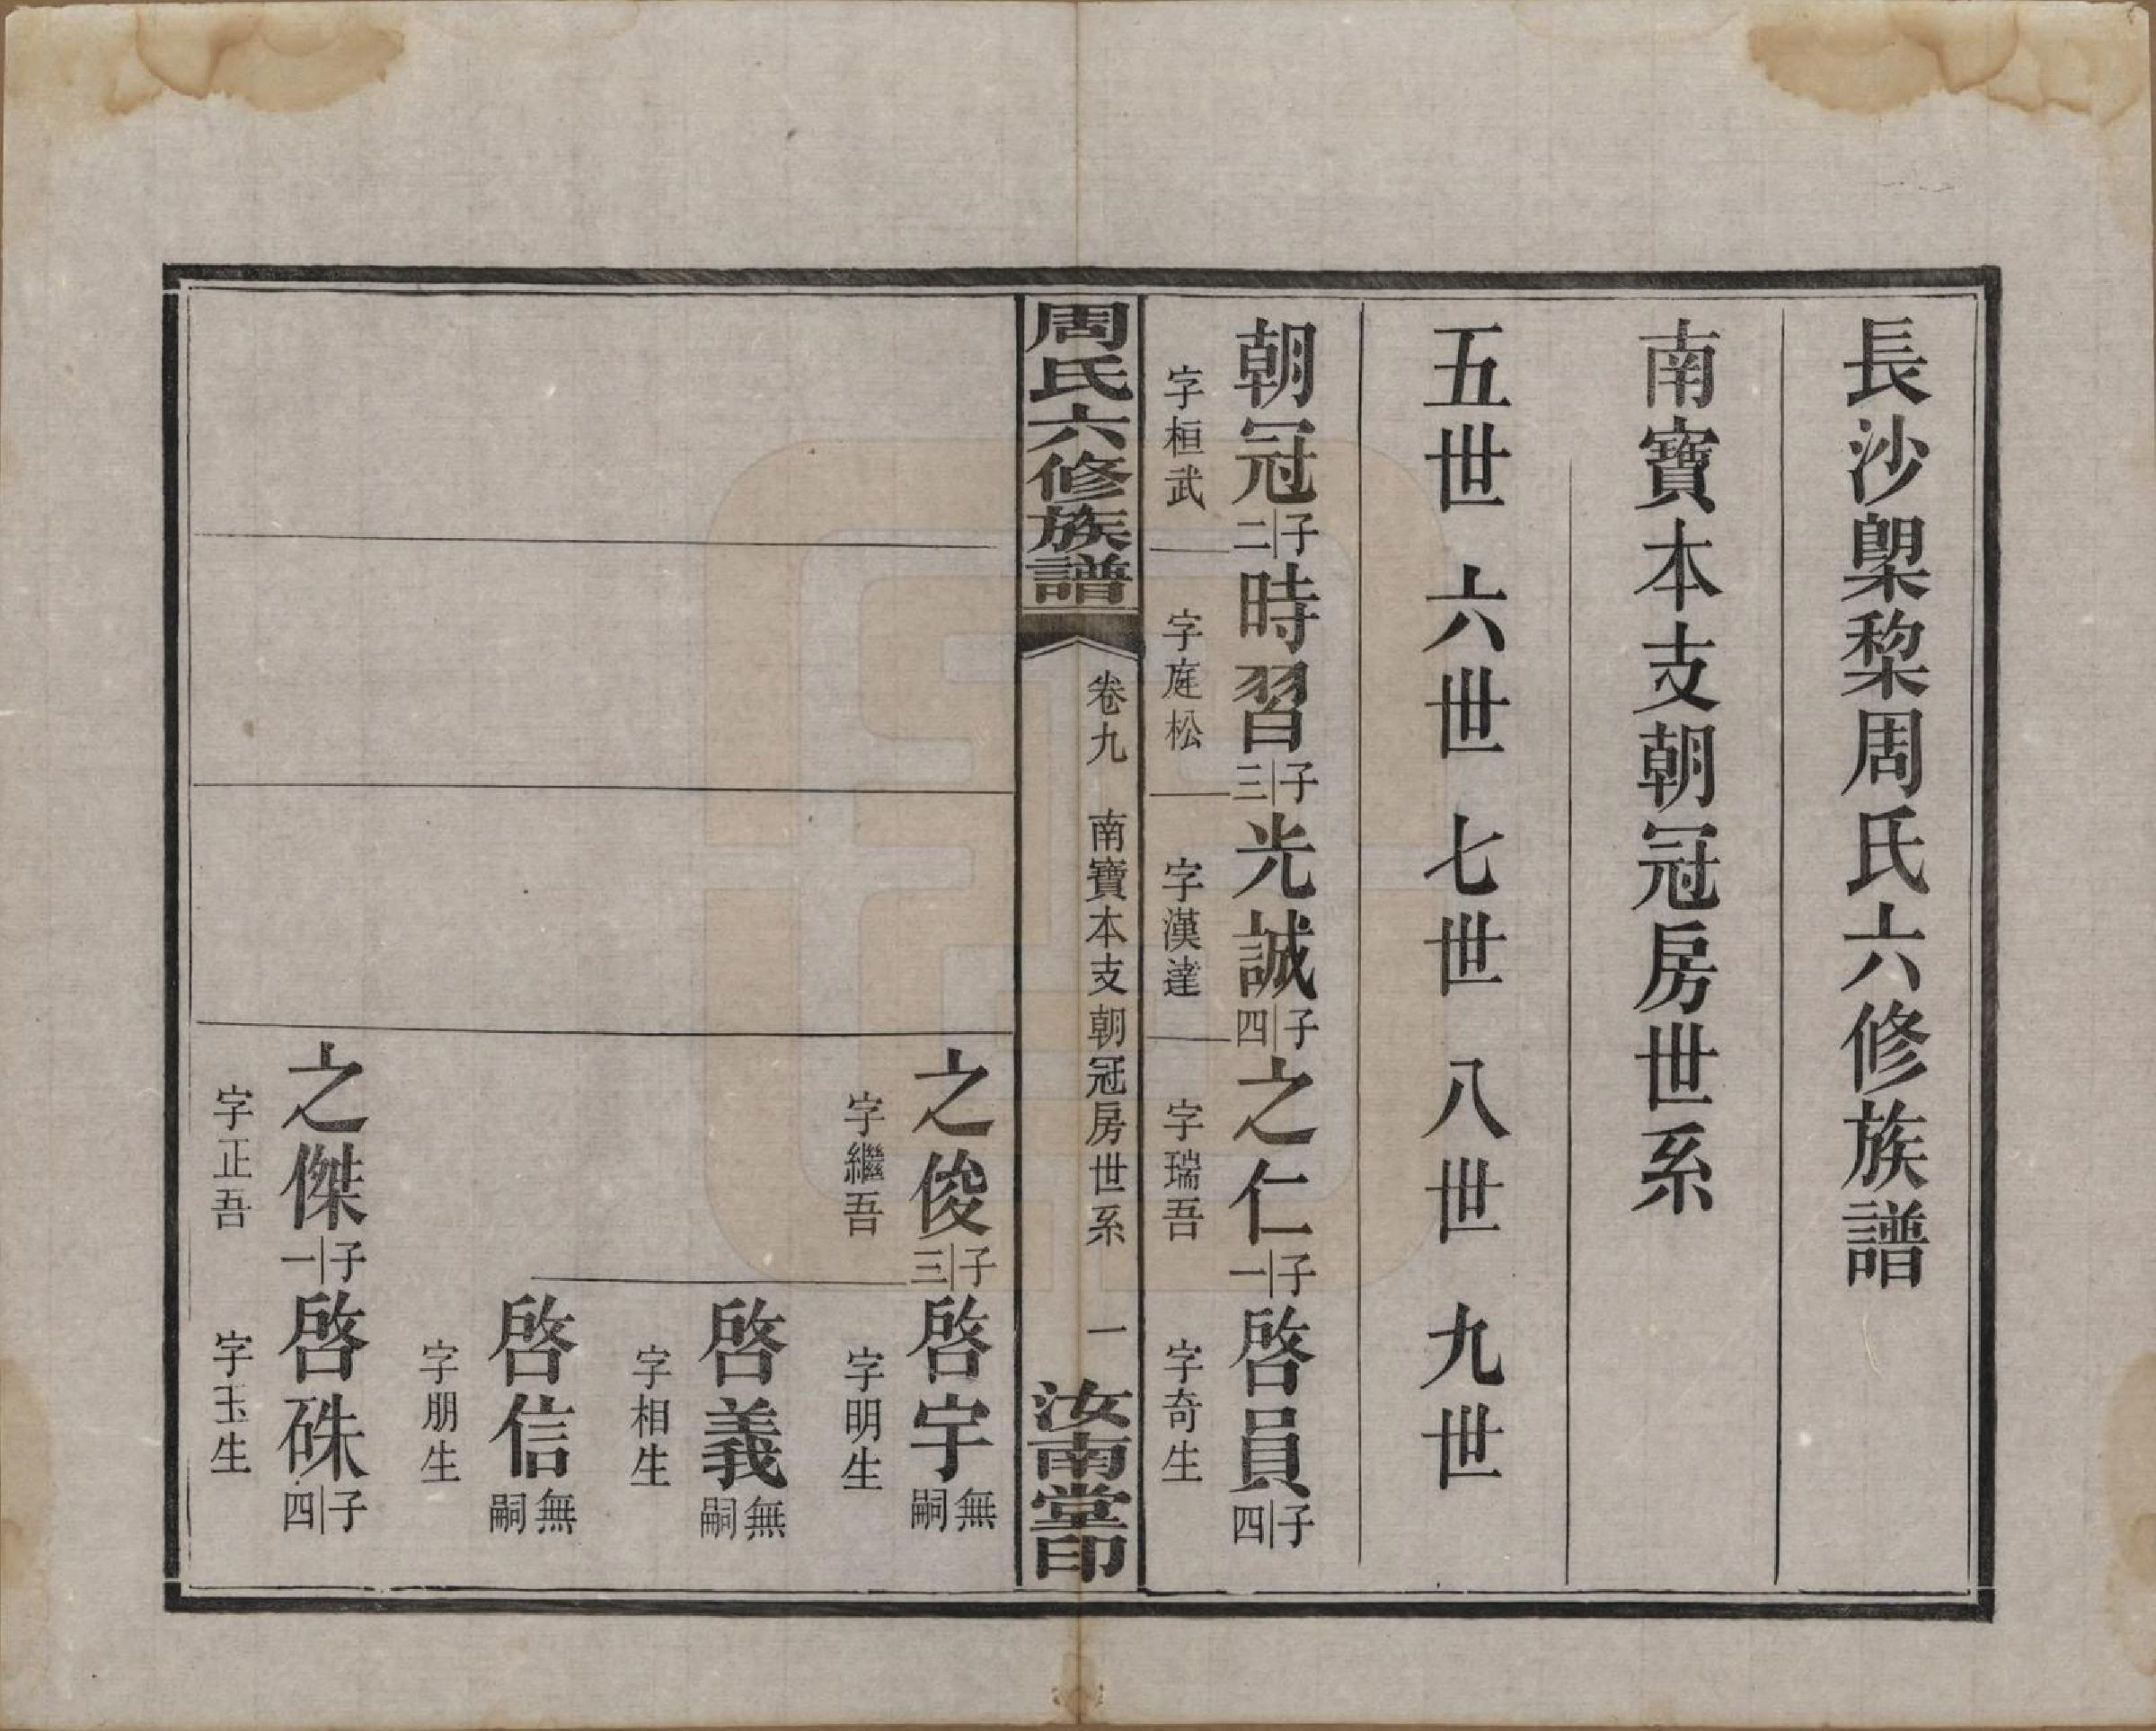 長沙㮚棃周氏六修族譜
南寶本支朝冠房世系
五世 六世 七世 八世 九世
朝冠 子二 時習 子三 光誠 子四 之仁 子一 啓員 子四
字桓武 字庭松 字漢達 字瑞吾 字奇生
周氏六修族譜 卷九 南寶本支朝冠房世系 一 汝南堂印
之俊 子三 啓宇 無嗣
字繼吾 字明生
啓義 無嗣
字相生
啓信 無嗣
字朋生
之傑 子一 啓硃 子四
字正吾 字玉生